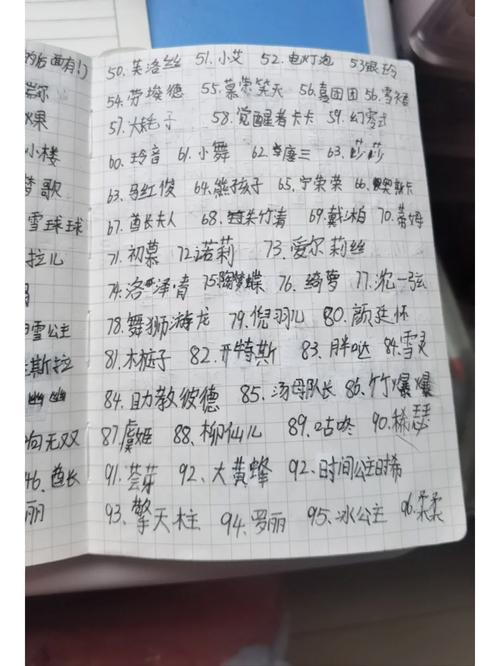 后面有!)
尔
果
小楼
梦歌
雪球球
拉儿
雪公主
斯拉
幽幽
向无双
46、酋长
丽
50、芙洛丝 51、小艾 52、电灯泡 53银玲
54、劳埃德 55、慕容笑天 56、喜团团 56、雪
57、大耗子 58、觉醒者卡卡 59、幻零式
60、玲音 61、小舞 62、唐三 63、莎莎
63、马红俊 64、熊孩子 65、宁荣荣 66、奥斯卡
67、酋长夫人 68、朱竹清 69、戴沐柏 70、蒂姆
71、初慕 72、诺莉 73、爱尔莉丝
74、洛泽青 75、陶梦蝶 76、绮萝 77、沈一弦
78、舞狮游龙 79、倪羽儿 80、颜延怀
81、木桩子 82、开特斯 83、胖哒 84、雪灵
84、助教彼德 85、汤母队长 86、竹爆爆
87、虞姬 88、柳仙儿 89、咕咚 90、稀瑟
91、芸芽 92、大黄蜂 92、时间公主时希
93、擎天柱 94、罗丽 95、冰公主 96、柔柔